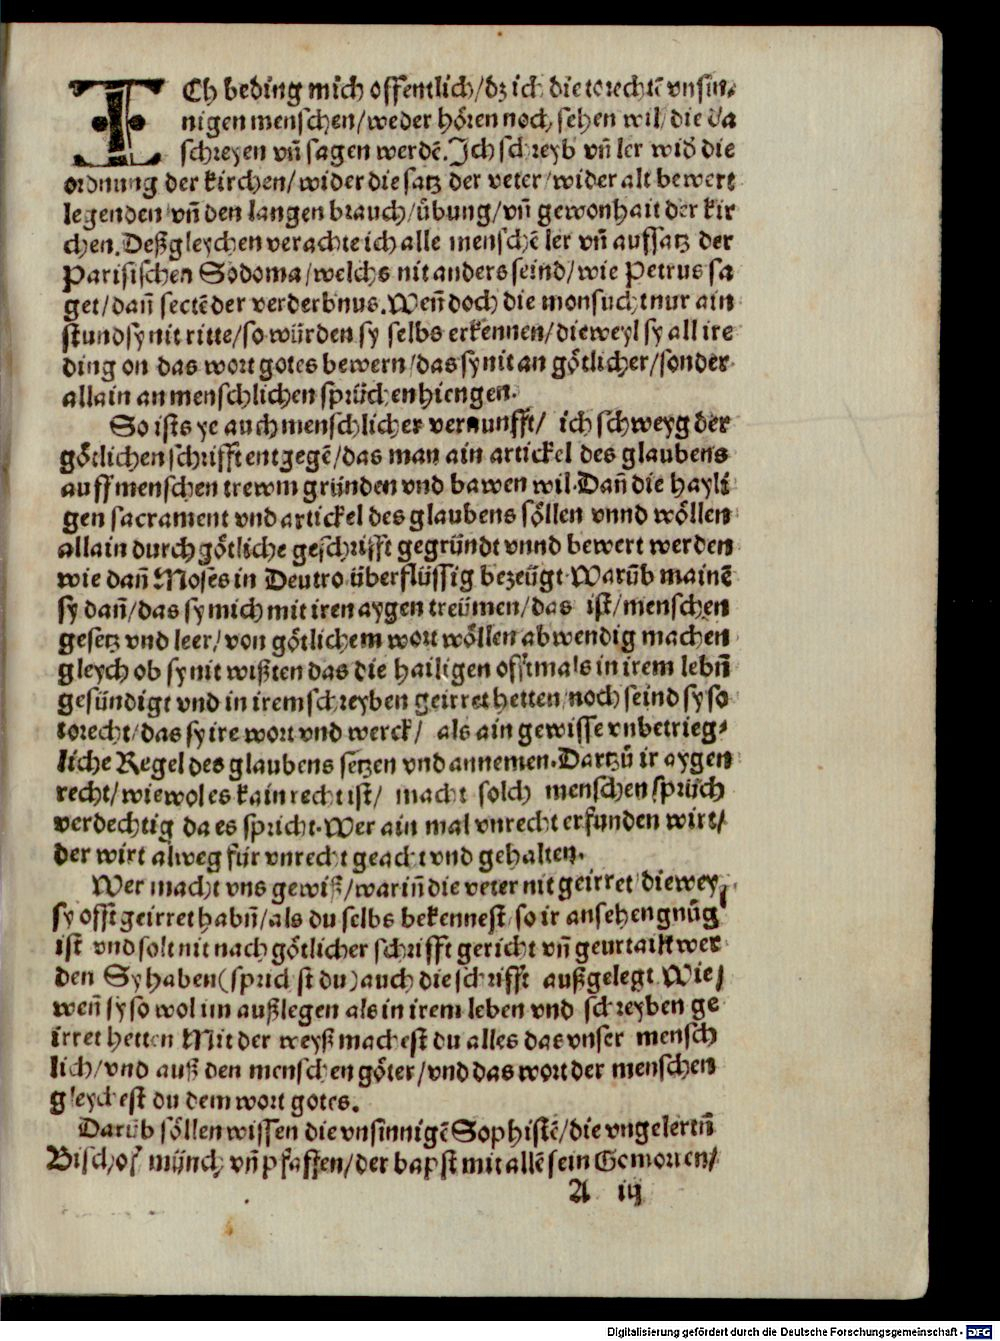 ICh beding mich offentlich/dz ich die torechtē vnsin⸗
nigen menschen/weder hören noch sehen wil/die da
schreyen vñ sagen werdē. Ich schreyb vñ ler wid̄ die
ordnung der kirchen/wider die satz der veter/wider alt bewert
legenden/vñ den langen brauch/übung/vñ gewonhait der kir
chen. Deßgleychen verachte ich alle menschē ler vñ auffsatz der
Parisischen Sodoma/welchs nit anders seind/wie Petrus sa
get/dañ sectē der verderbnus. Weñ doch die monsucht nur ain
stund sy nit ritte/so würden sy selbs erkennen/dieweyl sy all ire
ding on das wort gotes bewern/das sy nit an götlicher/sonder
allain an menschlichen sprüchen hiengen.
So ists ye auch menschlicher vernunfft/ ich schweyg der
götlichen schrifft entgegē/das man ain artickel des glaubens
auff menschen trewm gründen vnd bawen wil. Dañ die hayli
gen sacrament vnd artickel des glaubens söllen vnnd wöllen
allain durch götliche geschrifft gegründt vnnd bewert werden
wie dañ Moses in Deutro überflüssig bezeügt. Warūb mainē
sy dañ/das sy mich mit iren aygen treümen/das ist/menschen
gesetz vnd leer/von götlichem wort wöllen abwendig machen
gleych ob sy nit wißten das die hailigen offtmals in irem lebñ
gesündigt vnd in irem schreyben geirret hetten/noch seind sy so
torecht/das sy ire wort vnd werck/ als ain gewisse vnbetrieg⸗
liche Regel des glaubens setzen vnd annemen. Dartzů ir aygen
recht/wiewol es kain recht ist/ macht solch menschen sprüch
verdechtig da es spricht. Wer ain mal vnrecht erfunden wirt/
der wirt alweg für vnrecht geacht vnd gehalten.
Wer macht vns gewiß/wariñ die veter nit geirret/diewey
sy offt geirret habñ/als du selbs bekennest/so ir ansehen gnůg
ist vnd solt nit nach götlicher schrifft gericht vñ geurtailt wer
den Sy haben (sprichst du) auch die schrifft außgelegt Wie/
weñ sy so wol im außlegen als in irem leben vnd schreyben ge
irret hetten Mit der weyß machest du alles das vnser mensch
lich/vnd auß den menschen göter/vnd das wort der menschen
gleychest du dem wort gotes.
Darūb söllen wissen die vnsinnigē Sophistē/die vngelertñ
Bischof münch vñ pfaffen/der bapst mit allē sein Gomorren/
A iij
Digitalisierung gefördert durch die Deutsche Forschungsgemeinschaft - DFG